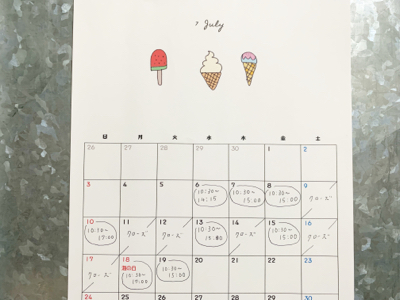 7 July
日 月 火 水 木 金 土
26 27 28 29 30 1 2
3 4 5 6 7 8 9
10:30~ 10:30~ 10:30~ クローズ
14:15 15:00 15:00
10 11 12 13 14 15 16
10:30~ クローズ クローズ 10:30~ クローズ 10:30~ クローズ
17:00 15:00 15:00
17 18 19 20 21 22 23
海の日
クローズ 10:30~ 10:30~
17:00 15:00
24 25 26 27 28 29 30